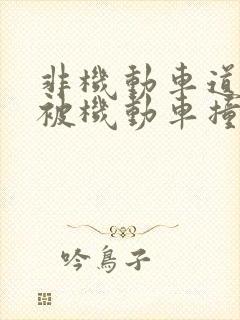 非機動車道
被機動車撞
吟鳥子